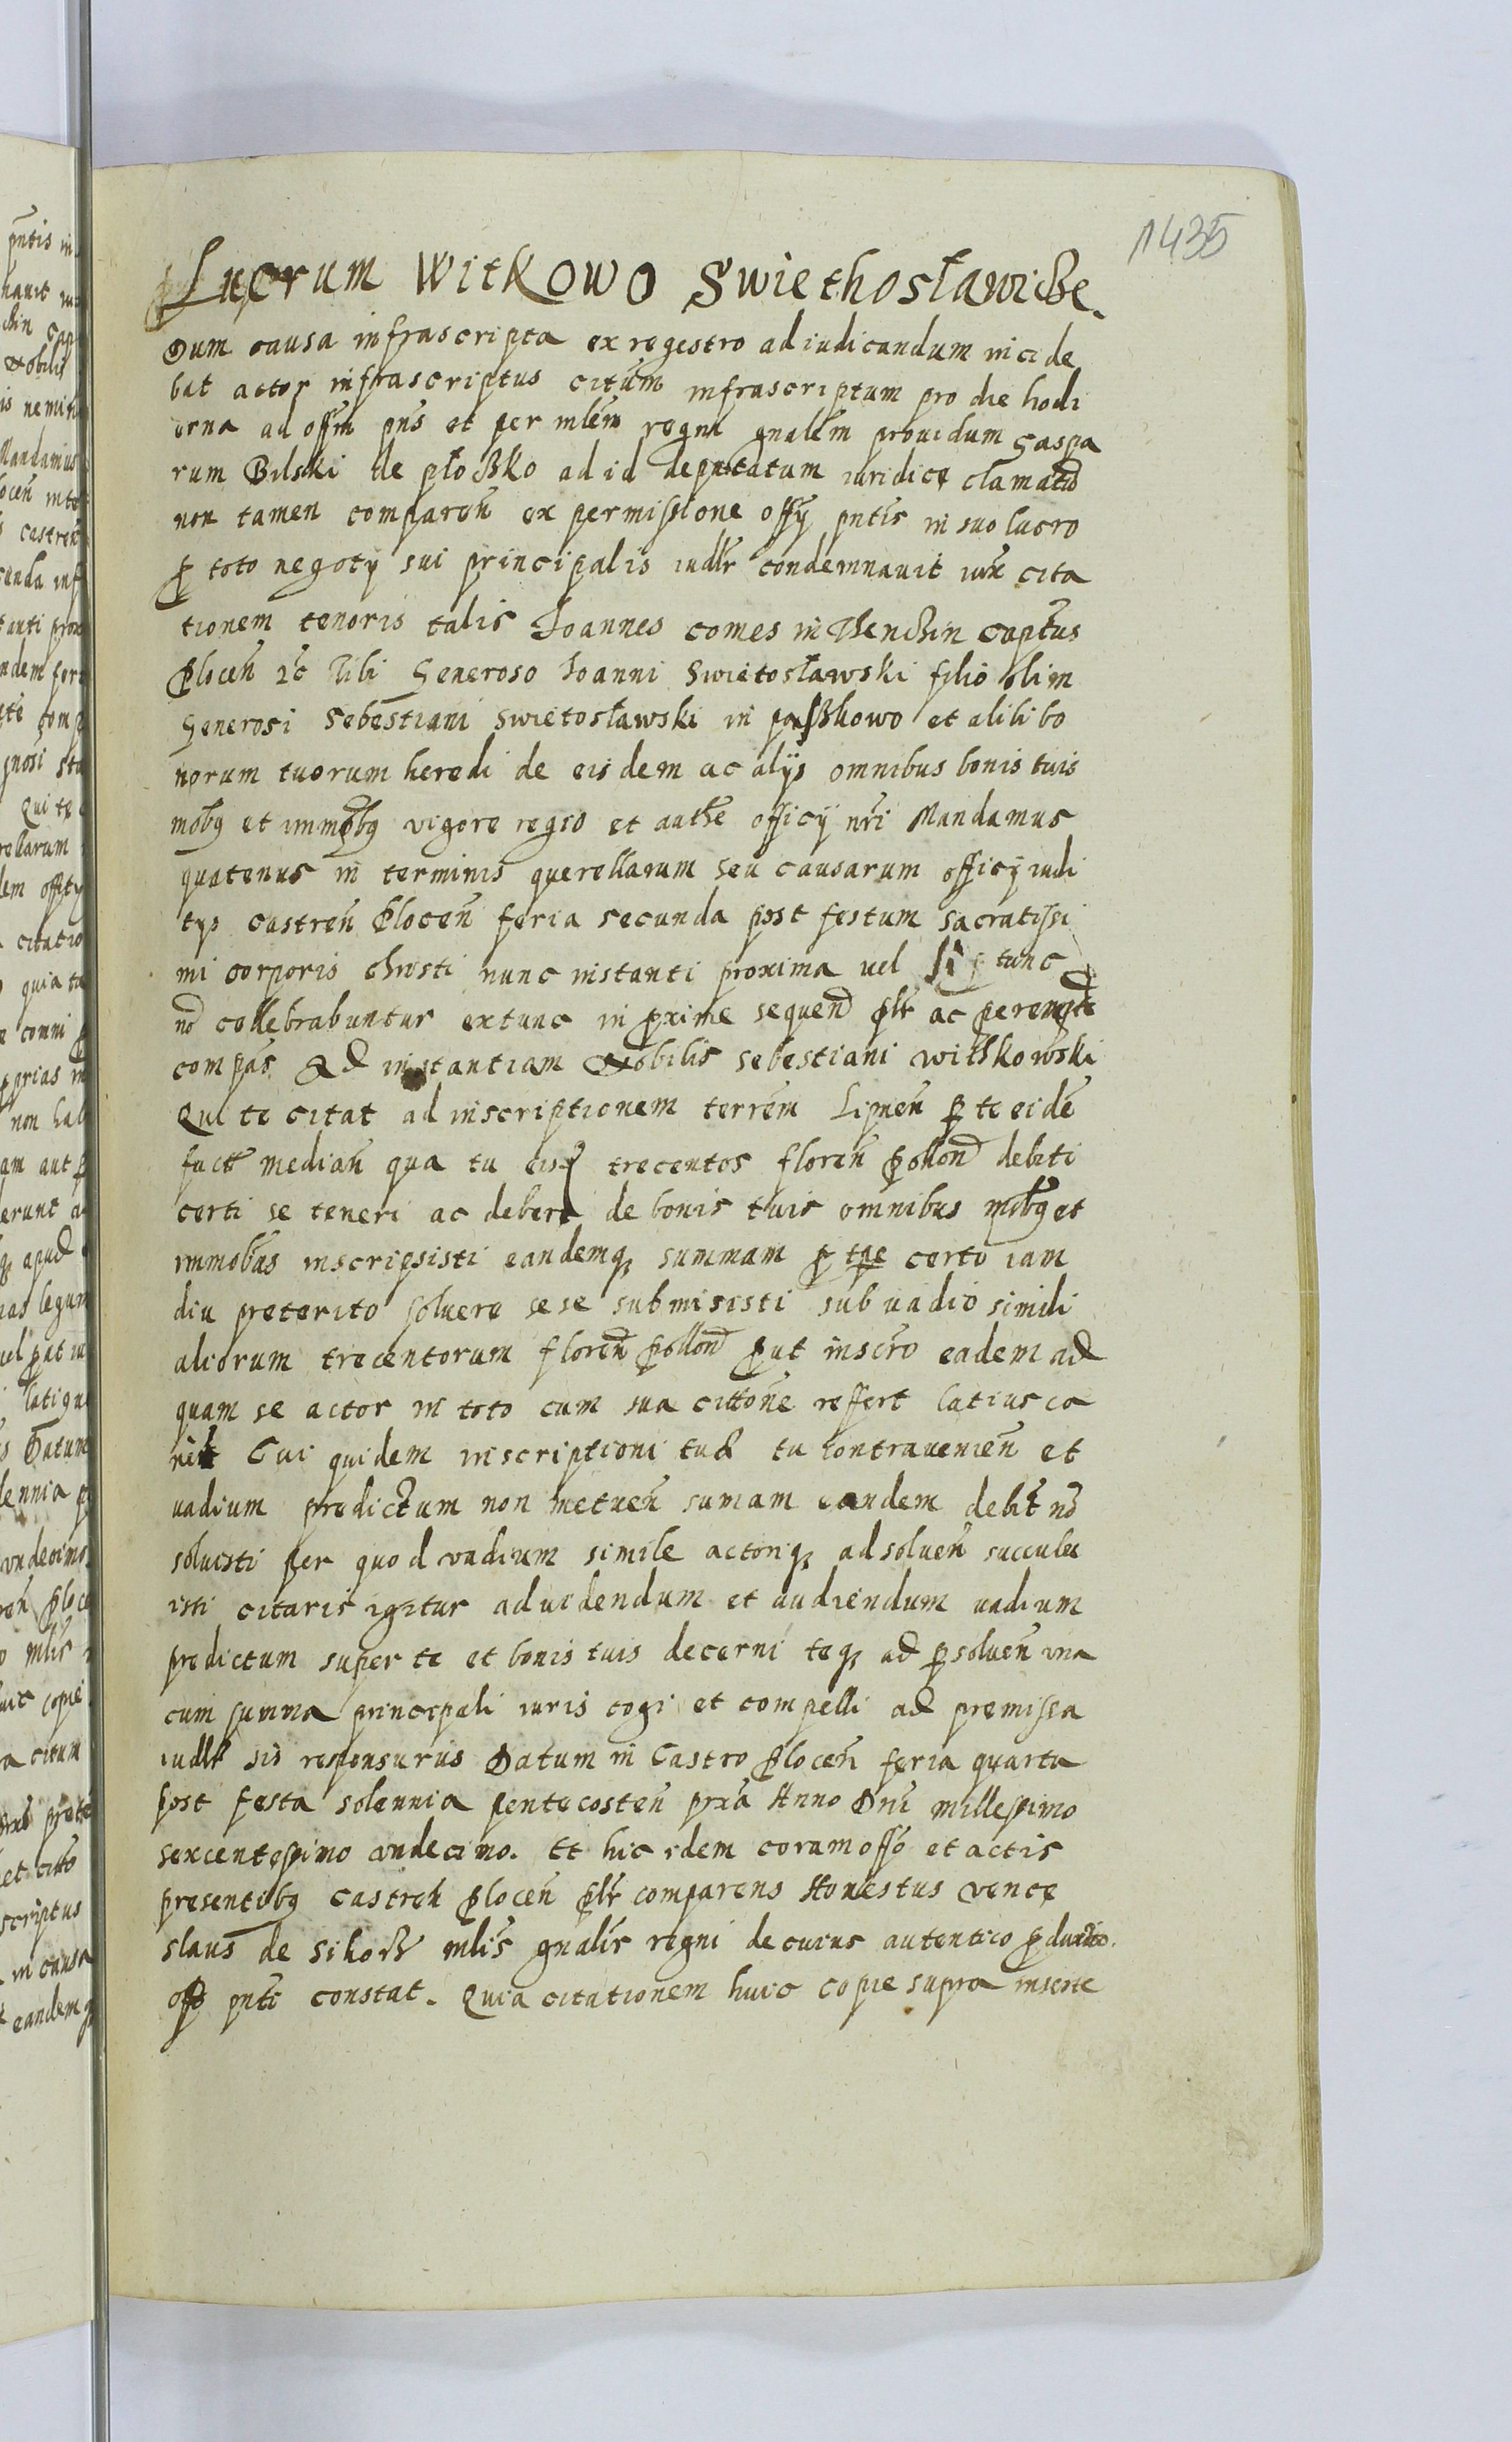 1435
Lucrum Witkowo Swiethosławicze.
Dum causa infrascripta ex regestro ad iudicandum incide
bat actor infrascriptus citum infrascriptum pro die hodi
erna ad offm pns et per mlem regni gnalem prouidum Caspa
rum Bilski de płoczko ad id deputatum iuridice clamatum
non tamen comparen ex permissione offy pntis in suo lucro
p toto negoty sui principalis iudlr condemnauit iux cita
tionem tenoris talis Joannes comes in Thenchin captus
Plocen zc Tibi Generoso Joanni Swietosławski filio olim
Generosi Sebestiani Swietosławski in paszkowo et alibi bo
norum tuorum heredi de eisdem ac alys omnibus bonis tuis
mobq et immobq vigore regio et authe officy nri Mandamus
quatenus in terminis querellarum seu causarum officy iudi
tys castren Plocen feria secunda post festum sacratissi
mi corporis christi nunc instanti proxima uel si tunc
no cellebrabuntur extunc in pxime sequend plr ac perempte
compas Ad instantiam Nobilis Sebestiani Withkowski
Qui te citat ad inscriptionem terrem Lipnen p te eidem
fact median qua tu eisq trecentos floren pollon debiti
certi se teneri ac debere de bonis tuis omnibus mobq et
immobas inscripsisti eandemq summam p tpe certo iam
diu preterito soluere sese submisisti sub uadio simili
aliorum trecentorum floren pollon put inscro eadem ad
quam se actor in toto cum sua cittone reffert latius ca
nit Cui quidem inscriptioni tuae tu contrauenien et
uadium predictum non metuen sumam eandem debit no
soluisti per quod vadium simile actoriq ad soluen succubu
isti citaris igitur ad uidendum et audiendum uadium
predictum super te et bonis tuis decerni teq ad psoluen una
cum summa principali iuris cogi et compelli ad premissa
iudlr sis responsurus Datum in Castro Plocen feria quarta
post festa solennia pentecosten prxa Anno Dni millesimo
sexcentesimo undecimo. Et hic idem coram offo et actis
presentibq castren Plocen plr comparens Honestus vence
slaus de Sikorz mlis gnalis regni de cuius autentico pductio.
offo pnti constat. Quia citationem huic copie supra inserte